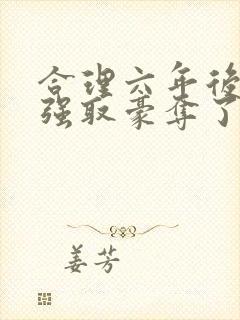 合理六年後
强取豪夺了
姜芳